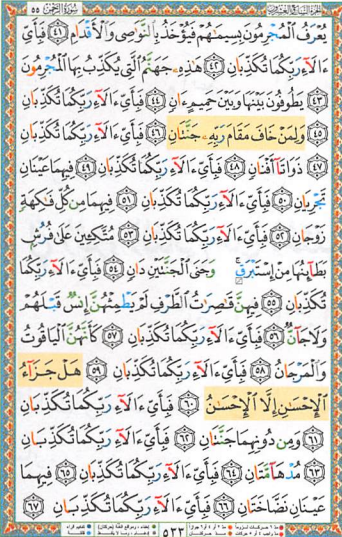 سورة الرحمن ٥٥
يُعْرَفُ الْمُجْرِمُونَ بِسِيمَاهُمْ فَيُؤْخَذُ بِالنَّوَاصِى وَالْأَقْدَامِ ﴿٤١﴾ فَبِأَيِّ
ءَالَاءِ رَبِّكُمَا تُكَذِّبَانِ ﴿٤٢﴾ هَٰذِهِ جَهَنَّمُ الَّتِي يُكَذِّبُ بِهَا الْمُجْرِمُونَ
﴿٤٣﴾ يَطُوفُونَ بَيْنَهَا وَبَيْنَ حَمِيمٍ ءَانٍ ﴿٤٤﴾ فَبِأَيِّ ءَالَاءِ رَبِّكُمَا تُكَذِّبَانِ
﴿٤٥﴾ وَلِمَنْ خَافَ مَقَامَ رَبِّهِ جَنَّتَانِ ﴿٤٦﴾ فَبِأَيِّ ءَالَاءِ رَبِّكُمَا تُكَذِّبَانِ
﴿٤٧﴾ ذَوَاتَا أَفْنَانٍ ﴿٤٨﴾ فَبِأَيِّ ءَالَاءِ رَبِّكُمَا تُكَذِّبَانِ ﴿٤٩﴾ فِيهِمَا عَيْنَانِ
تَجْرِيَانِ ﴿٥٠﴾ فَبِأَيِّ ءَالَاءِ رَبِّكُمَا تُكَذِّبَانِ ﴿٥١﴾ فِيهِمَا مِن كُلِّ فَٰكِهَةٍ
زَوْجَانِ ﴿٥٢﴾ فَبِأَيِّ ءَالَاءِ رَبِّكُمَا تُكَذِّبَانِ ﴿٥٣﴾ مُتَّكِـِٔينَ عَلَىٰ فُرُشٍ
بَطَائِنُهَا مِنْ إِسْتَبْرَقٍ وَجَنَى الْجَنَّتَيْنِ دَانٍ ﴿٥٤﴾ فَبِأَيِّ ءَالَاءِ رَبِّكُمَا
تُكَذِّبَانِ ﴿٥٥﴾ فِيهِنَّ قَٰصِرَٰتُ الطَّرْفِ لَمْ يَطْمِثْهُنَّ إِنسٌ قَبْلَهُمْ
وَلَا جَانٌّ ﴿٥٦﴾ فَبِأَيِّ ءَالَاءِ رَبِّكُمَا تُكَذِّبَانِ ﴿٥٧﴾ كَأَنَّهُنَّ الْيَاقُوتُ
وَالْمَرْجَانُ ﴿٥٨﴾ فَبِأَيِّ ءَالَاءِ رَبِّكُمَا تُكَذِّبَانِ ﴿٥٩﴾ هَلْ جَزَاءُ
الْإِحْسَٰنِ إِلَّا الْإِحْسَٰنُ ﴿٦٠﴾ فَبِأَيِّ ءَالَاءِ رَبِّكُمَا تُكَذِّبَانِ
﴿٦١﴾ وَمِن دُونِهِمَا جَنَّتَانِ ﴿٦٢﴾ فَبِأَيِّ ءَالَاءِ رَبِّكُمَا تُكَذِّبَانِ
﴿٦٣﴾ مُدْهَامَّتَانِ ﴿٦٤﴾ فَبِأَيِّ ءَالَاءِ رَبِّكُمَا تُكَذِّبَانِ ﴿٦٥﴾ فِيهِمَا
عَيْنَانِ نَضَّاخَتَانِ ﴿٦٦﴾ فَبِأَيِّ ءَالَاءِ رَبِّكُمَا تُكَذِّبَانِ ﴿٦٧﴾
٥٣٣